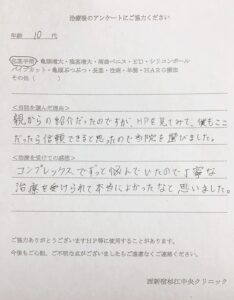 治療後のアンケートにご協力ください
年齢 10代
包茎手術・亀頭増大・陰茎増大・埋没ペニス・ED・シリコンボール
パイプカット・亀頭ぶつぶつ・長茎・性病・早漏・HARG療法
その他( )
<当院を選んだ理由>
親からの紹介だったのですが、HPを見てみて、僕もここ
だったら信頼できると思ったので当院を選びました。
<治療を受けての感想>
コンプレックスでずっと悩んでいたので丁寧な
治療を受けられて本当によかったなと思いました。
ご協力ありがとうございますHP等に使用することがあります。
今後もご心配、ご不明な点がございましたらご遠慮なくご連絡ください。
西新宿杉江中央クリニック